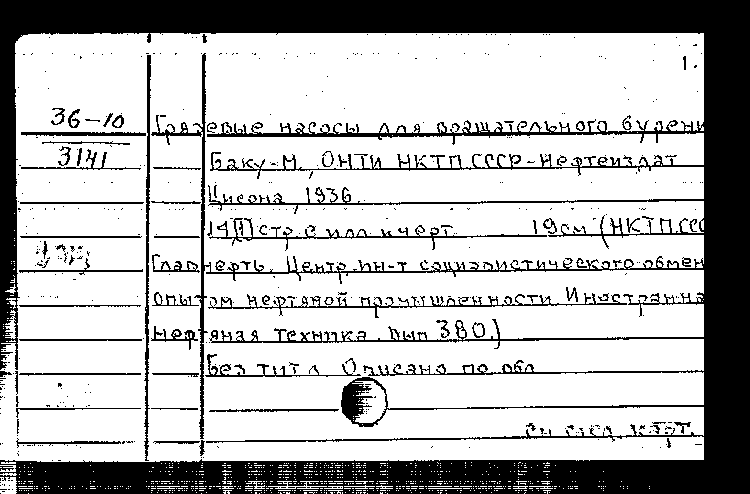 1.
36-10 Грязевые насосы для вращательного бурени
3141 Баку-М., ОНТИ НКТП СССР-Нефтеиздат
Цисона, 1936
14[1] стр с илл и черт 19см (НКТП ССС
Главнефть. Центр. ин-т социалистического обмен
опытом нефтяной промышленности Иностранна
нефтяная техника. Вып 380.)
Без тит л Описано по обл
см след. карт.